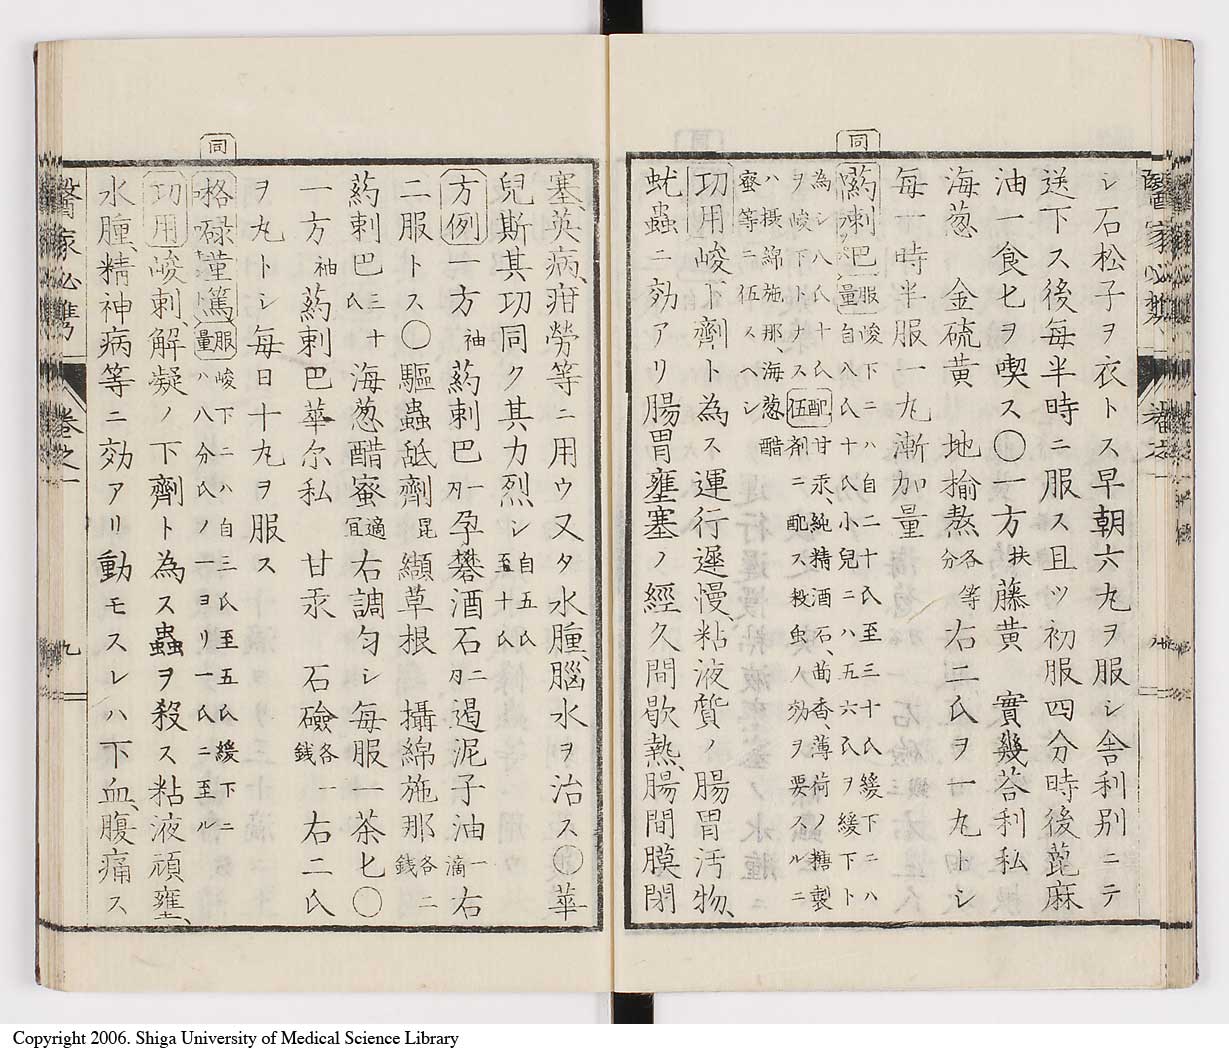 同
シ石松子ヲ衣トス早朝六丸ヲ服シ舎利別ニテ
送下ス後毎半時ニ服ス且ツ初服四分時後蓖麻
油一食匕ヲ喫ス〇一方扶藤黄 實幾荅利私
海葱 金硫黄 地揄熬各等分右二氏ヲ一丸トシ
毎一時半服一丸漸加量
葯刺巴服量峻下ニハ自二十氏至三十氏緩下ニハ
自八氏十氏小兒ニハ五六氏ヲ緩下ト
為シ八氏十氏配伍甘汞、純精酒石、茴香、薄荷ノ糖製
ヲ峻下トナス剤ニ配ス殺虫ノ効ヲ要スルニ
ハ攝綿施那、海葱醋
蜜等ニ伍スヘシ
功用峻下劑ト為ス運行遲慢、粘液質ノ腸胃汚物、
蚘蟲ニ効アリ腸胃壅塞ノ經久間歇熱、腸間膜閉
塞英病、疳勞等ニ用ウ又タ水腫、腦水ヲ治ス
華
兒斯其功同ク其力烈シ自五氏至五十氏
方例一方袖葯刺巴一刄孕礬酒石二刄遏泥子油一滴右
二服トス〇驅蟲舐劑昆纈草根 攝綿施那各二銭
葯刺巴三十氏海葱醋蜜適宜右調匀シ毎服一茶匕〇
一方袖葯刺巴華尓私 甘汞 石鹼各一銭右二氏
ヲ丸トシ毎日十丸ヲ服ス
同
格碌菫篤服量峻下ニハ自三氏至五氏緩下ニ
ハ八分氏ノ一ヨリ一氏ニ至ル
功用峻刺、解凝ノ下劑ト為ス蟲ヲ殺ス粘液頑壅、
水腫、精神病等ニ効アリ動モスレハ下血、腹痛ス
醫家必携
卷之一
九
Copyright 2006. Shiga University of Medical Science Library